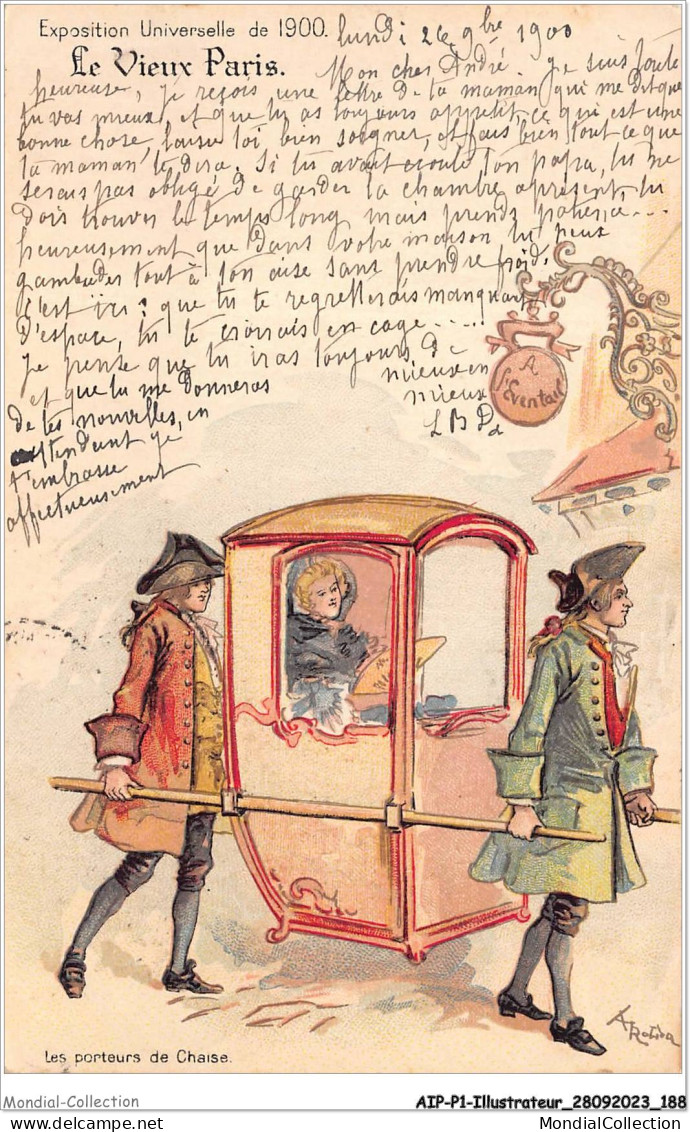 Exposition Universelle de 1900.
Le Vieux Paris.
lundi 26 9bre 1900
Mon cher André. Je suis toute
heureuse, je reçois une lettre de ta maman qui me dit que
tu vas mieux, et que tu as toujours appetit, ce qui est une
bonne chose, laisse toi, bien soigner, et fais bien tout ce que
ta maman te dira. Si tu avait écouté ton papa, tu ne
serais pas obligé de garder la chambre, apresent, tu
dois trouver le temps long mais prends patience...
heureusement que dans votre maison tu peux
gambader tout à ton aise sans prendre froid.
C'est ici : que tu te regretterais manquant
d'espace, tu te croirais en cage....
je pense que tu iras toujours de
mieux en
mieux
et que tu me donneras
de tes nouvelles, en
attendant je
t'embrasse
affectueusement
A
l'Eventail
A Robida
Les porteurs de Chaise.
Mondial-Collection
AIP-P1-Illustrateur_28092023_188
MONDIALCOLLECTION